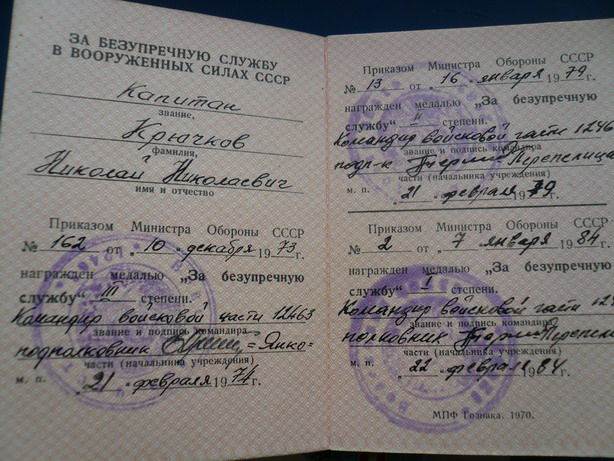 ЗА БЕЗУПРЕЧНУЮ СЛУЖБУ
В ВООРУЖЕННЫХ СИЛАХ СССР
Капитан
звание,
Крючков
фамилия,
Николай Николаевич
имя и отчество
Приказом Министра Обороны СССР
№ 162 от „10„ декабря 1973 г.
награжден медалью „За безупречную
службу“ III степени.
Командир войсковой части 12463
звание и подпись командира
подполковник =Янко=
части (начальника учреждения)
м. п. „21„ февраля 1974 г.
Приказом Министра Обороны СССР
№ 13 от „16„ января 1979 г.
награжден медалью „За безупречную
службу“ II степени.
Командир войсковой части 1246
звание и подпись командира
подп-к Перепелица
части (начальника учреждения)
м. п. „21„ февраля 1979 г.
Приказом Министра Обороны СССР
№ 2 от „7„ января 1984 г.
награжден медалью „За безупречную
службу“ I степени.
Командир войсковой части 12
звание и подпись командира
полковник Перепели
части (начальника учреждения)
м. п. „22„ февраля 1984 г.
МПФ Гознака. 1970.